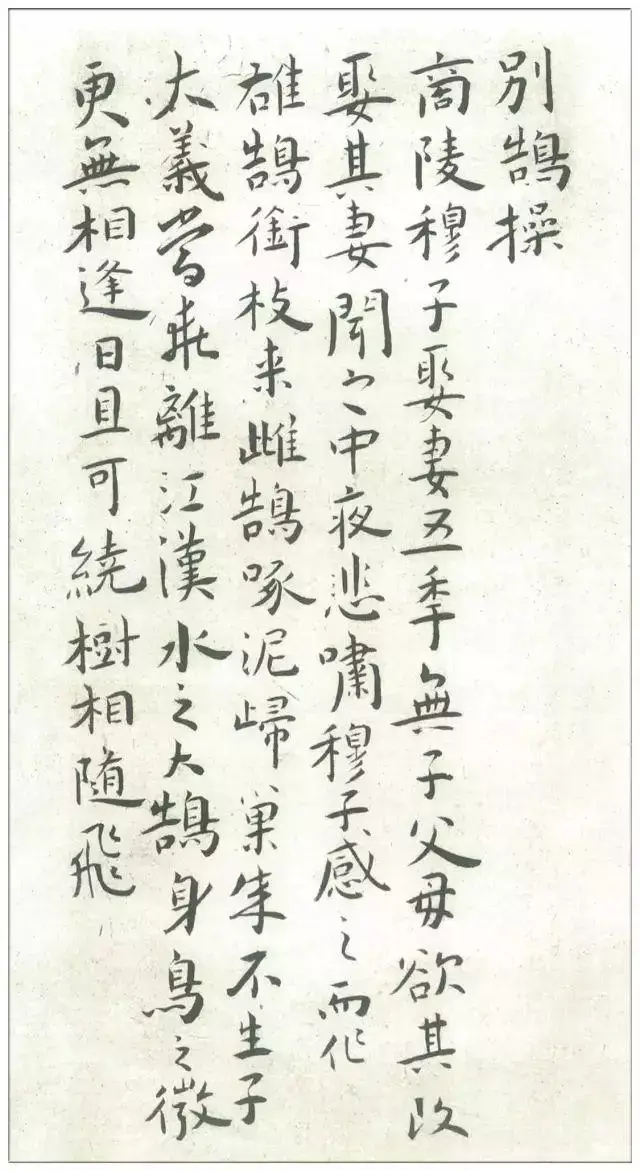 別鵠操
商陵穆子娶妻五年無子父母欲其改
娶其妻聞之中夜悲嘯穆子感之而作
雄鵠銜枝来雌鵠啄泥歸巢成不生子
大義當乖離江漢水之大鵠身鳥之微
更無相逢日且可繞樹相随飛